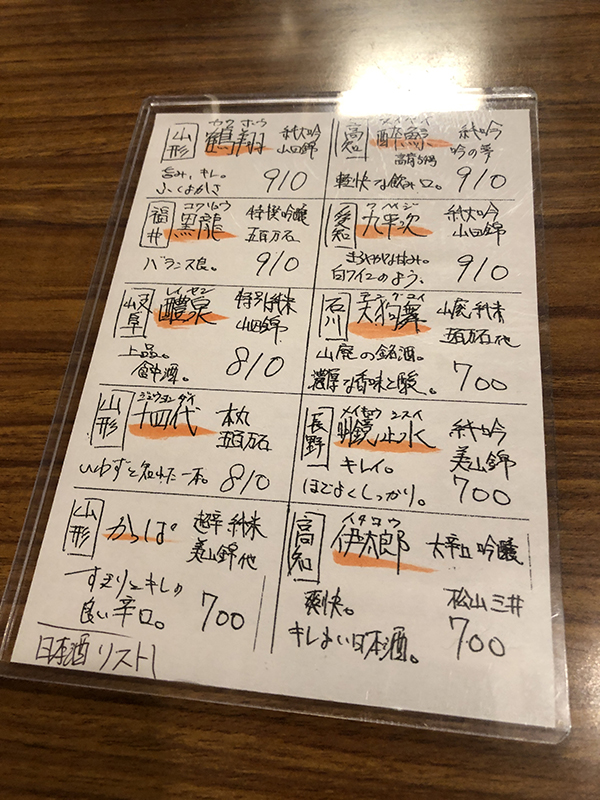 山形
カクホウ
鶴翔
純大吟
山田錦
旨み、キレ。
ふくよかさ
910
高知
スイゲイ
酔鯨
高育54号
純吟
吟の夢
軽快な飲み口。
910
福井
コクリュウ
黒龍
特撰吟醸
五百万石
バランス良。
910
愛知
クヘイジ
九平次
純大吟
山田錦
まろやかなはなみ。
白ワインのよう。
910
岐阜
レイセン
醴泉
特別純米
山田錦
上品。
食中酒。
810
石川
テングマイ
天狗舞
山廃純米
五百万石他
山廃の銘酒。
濃厚な香味と酸。
700
山形
ジュウヨンダイ
十四代
本丸
五百万石
いわずと知れた一本。
810
長野
メイキョウシスイ
明鏡止水
純吟
美山錦
キレイ。
ほどよくしっかり。
700
山形
かっぱ
超辛純米
美山錦他
すっきりとキレの
良い辛口。
700
高知
イタロウ
伊太郎
太平山 吟醸
松山三井
爽快。
キレよい日本酒。
700
日本酒リスト